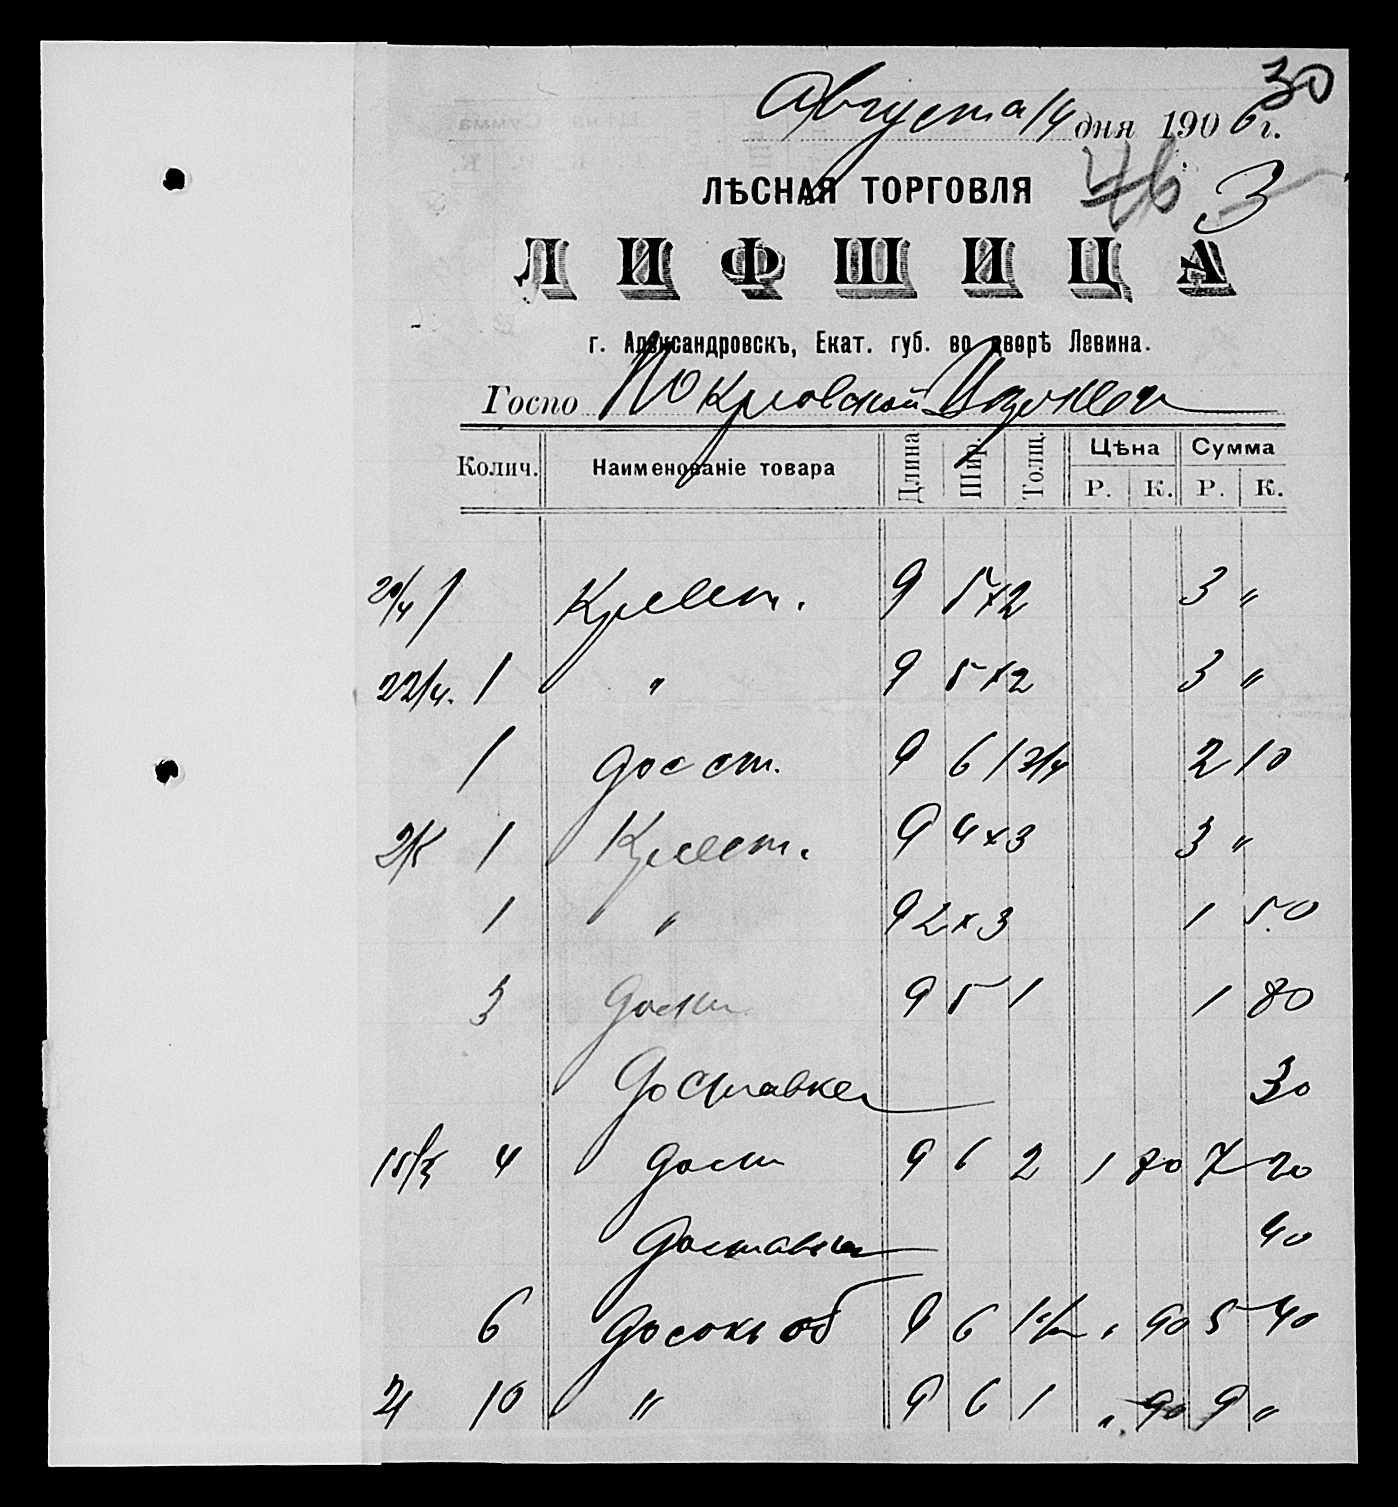 30
Августа 14 дня 1906 г.
46 3
ЛѢСНАЯ ТОРГОВЛЯ
ЛИФШИЦА
г. Александровскъ, Екат. губ. во дворѣ Левина.
Госпо Покровской Церкви
Колич. Наименованіе товара Длина Шир. Толщ. Цѣна Сумма
Р. К. Р. К.
20/4 1 9 5x2 3 "
22/4. 1 " 9 5x2 3 "
1 9 6 1 3/4 2 10
2/5 1 9 4x3 3 "
1 " 9 2x3 1 50
3 доски 9 5 1 1 80
Доставка 30
15/5 4 доски 9 6 2 1 80 7 20
Доставка 40
6 досокъ об 9 6 1 1/2 " 90 5 40
10 " 9 6 1 " 90 9 "